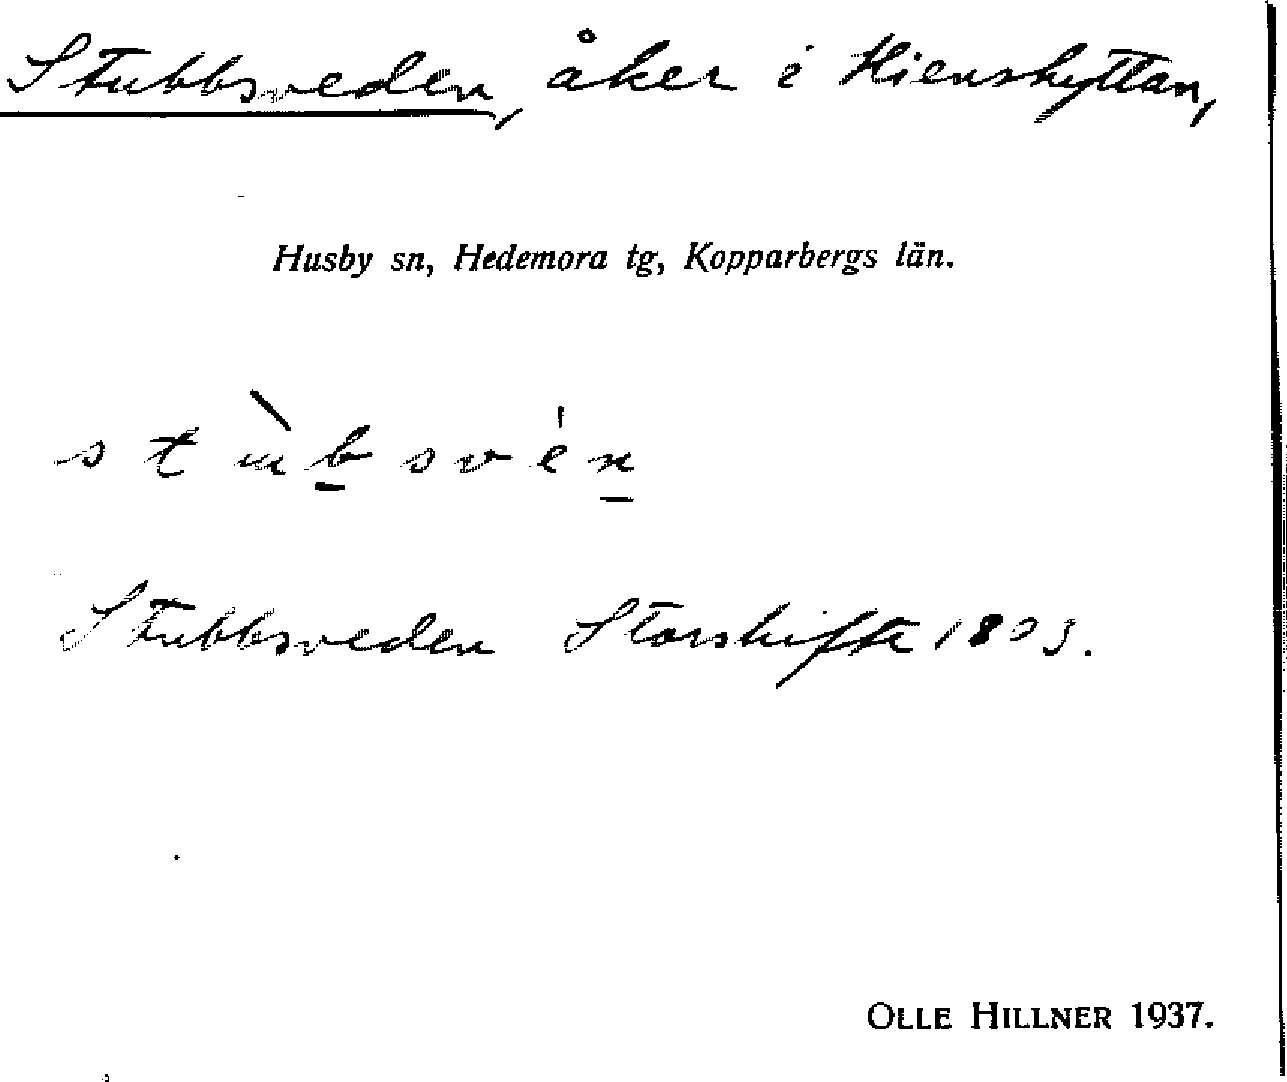 Stubbsveden, åker i Hienshyttan,
Husby sn, Hedemora tg, Kopparbergs län.
stùb̲svén̲
Stubbsveden Storskifte 1803.
OLLE HILLNER 1937.